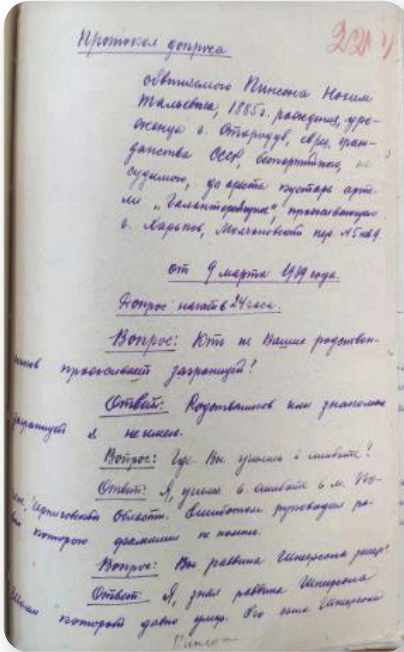 Протокол допроса
221
обвиняемого Пинсона Нохим
1885г. рождения, уро-
женца г. Стародуб, евр., граж-
данства СССР, беспартийного, не
судимого, до ареста кустарь арте-
ли „Галантерейщик", проживающего
г. Харьков, пер. №5 кв 9.
от 9 марта 1939 года.
Допрос начат в 24 часа.
Вопрос: Кто из Ваших родствен-
ников проживает заграницей?
Ответ: Родственников или знакомых
заграницей я не имею.
Вопрос: Где Вы учились в ешиботе?
Ответ: Я, учился в ешиботе в м. По-
Черниговской области. Ешиботом руководил ра-
которого фамилии не помню.
Вопрос: Вы раввина Шнеерсона знали?
Ответ: Я, знал раввина Шнеерсона
который давно умер. Его сына Шнеерсона
Пинсон